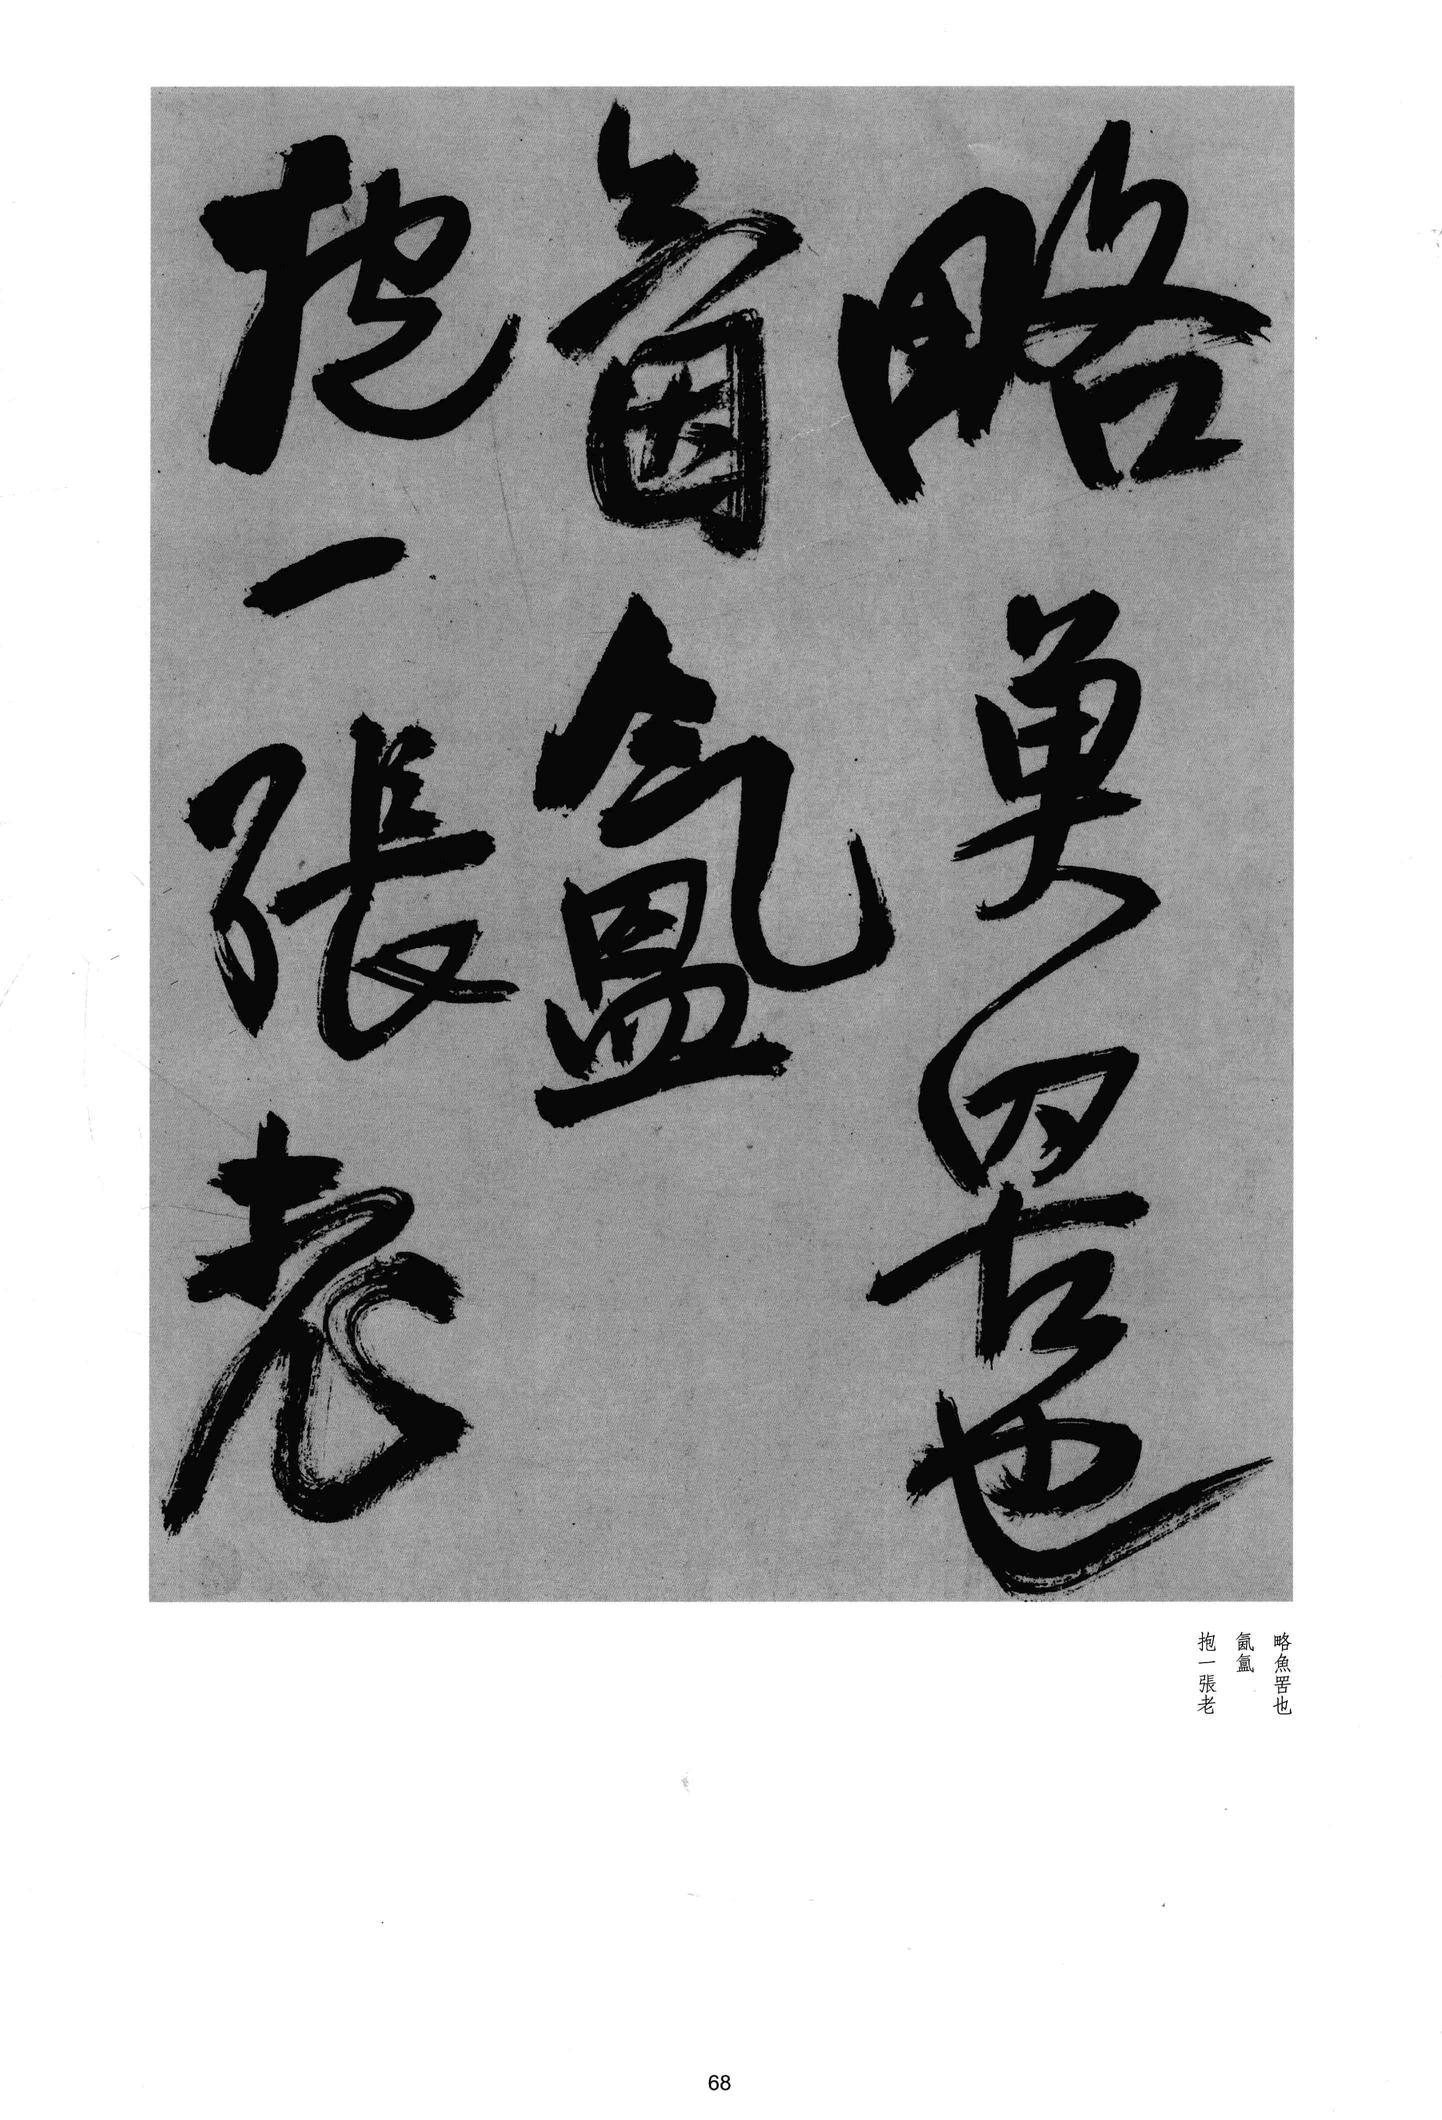 略魚罟也
氤氳
抱一張老
略魚罟也
氤氳
抱一張老
68